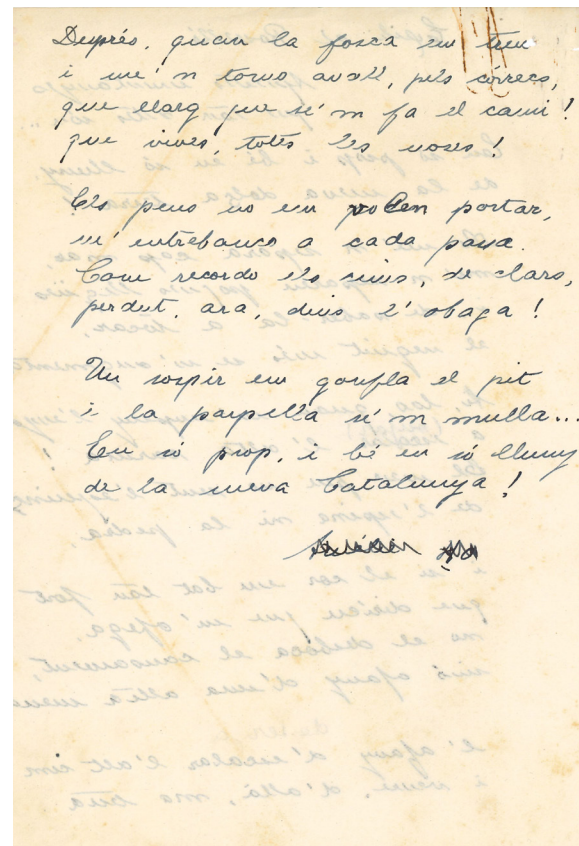 Després, quan la fosca em ten
i me'n torno avall, pels còrrecs,
que llarg que se'm fa el camí!
que vives, totes les noses!
Els peus no em poden portar,
m'entrebanco a cada passa.
Com recordo els cims, de clars,
perdut, ara, dins l'obaga!
Un sospir em gonfla el pit
i la parpella se'm mulla...
En só prop, i bé en só lluny
de la meva Catalunya!